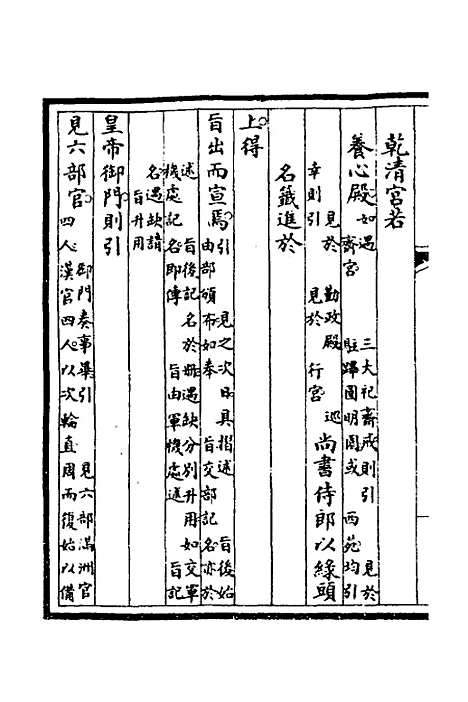 乾清宮若
養心殿如遇 三大祀齋戒則引 見於
齋宮 駐蹕圓明園或 西苑均引
見於 勤政殿 巡
幸則引 見於 行宮 尚書侍郎以綠頭
名籤進於
上得
旨出而宣焉引 見之次日具摺述 旨後始
由部頒布如奉 旨交部記名亦於
述 旨後記名於冊遇缺分別升用如交軍
機處記名即傳 旨由軍機處述 旨記
名遇缺請
旨升用
皇帝御門則引
見六部官御門奏事畢引 見六部滿洲官
四人漢官四人以次輪直周而復始以備